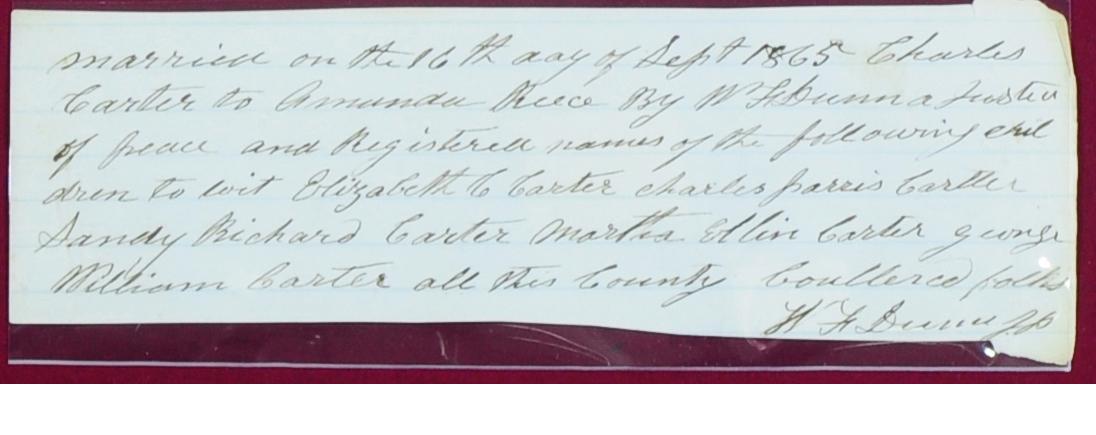 married on the 16th day of Sept 1865 Charles
Carter to Amanda Reece By W F Dunn a Justice
of peace and Registered names of the following chil
dren to wit Elizabeth C Carter charles parris Cartter
Sandy Richard Carter Martha Ellin Carter george
William Carter all this County Coullered folks
W F Dunn JP